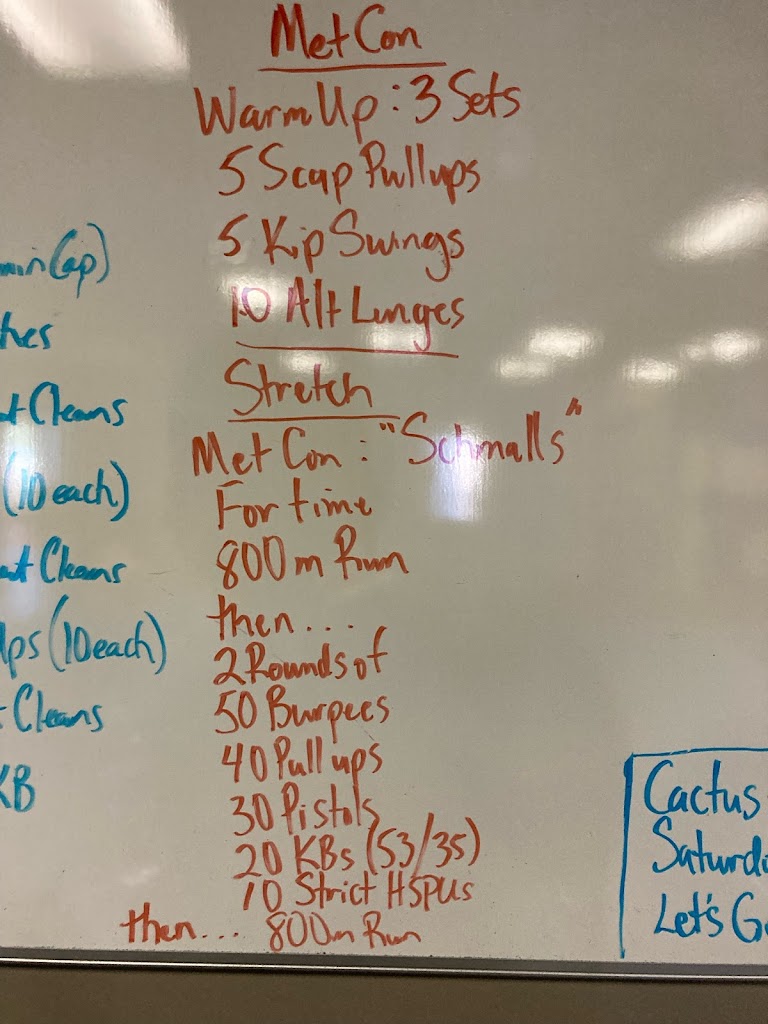 MetCon
Warm Up: 3 Sets
5 Scap Pullups
5 Kip Swings
10 Alt Lunges
Stretch
MetCon: "Schmalls"
For time
800m Run
then....
2 Rounds of
50 Burpees
40 Pull ups
30 Pistols
20 KBs (53/35)
10 Strict HSPUs
then... 800m Run
Cap)
Cleans
(10 each)
Cleans
(10 each)
Cleans
KB
Cactus
Let's